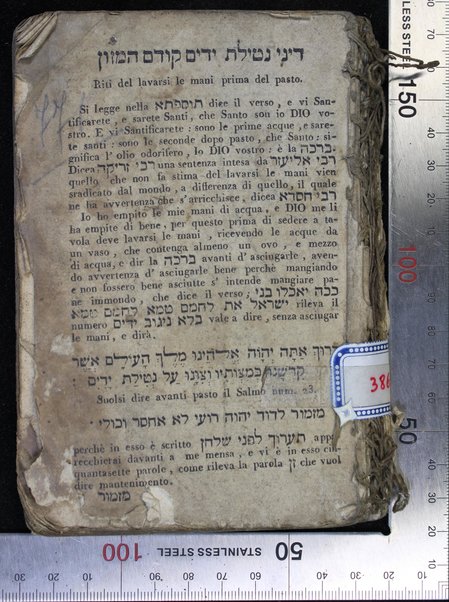 דיני נטילת ידים קודם המזון
Riti del lavarsi le mani prima del pasto.
Si legge nella תוספתא dice il verso, e vi San-
tificarete, e sarete Santi, che Santo son io DIO vo-
stro. E vi Santificarete: sono le prime acque, e sare-
te santi: sono le seconde dopo pasto, che Santo: si-
gnifica l'olio odorifero, Io DIO vostro: è la ברכה.
Dicea רבי אליעזר una sentenza intesa da רבי זריקה
quello che non fa stima del lavarsi le mani vien
sradicato dal mondo, a differenza di quello, il quale
ne ha avvertenza che s'arricchisce, dicea רבי חסדא
Io ho empito le mie mani di acqua, e DIO me li
ha empite di bene, per questo prima di sedere a ta-
vola deve lavarsi le mani, ricevendo le acque da
un vaso, che contenga almeno un ovo, e mezzo
di acqua, e dir la ברכה avanti d'asciugarle, aven-
do avvertenza d'asciugarle bene perchè mangiando
e non fossero bene asciutte s'intende mangiare pa-
ne immondo, che dice il verso, ככה יאכלו בני
ישראל את לחמם טמא לחמם טמא rileva il
numero בלא ניגוב ידים vale a dire, senza asciugar
le mani, e dirà.
ברוך אתה יהוה אלהינו מלך העולם אשר
קדשנו במצותיו וצונו על נטילת ידים :
Suolsi dire avanti pasto il Salmo num. 23.
מזמור לדוד יהוה רועי לא אחסר וכולי ·
perchè in esso è scritto תערוך לפני שלחן app
recchierai davanti a me mensa, e vi è in esso cin-
quantasette parole, come rileva la parola זן che vuol
dire mantenimento.
מזמור
386
LESS STEEL
150
100
50
100 STAINLESS STEEL 50